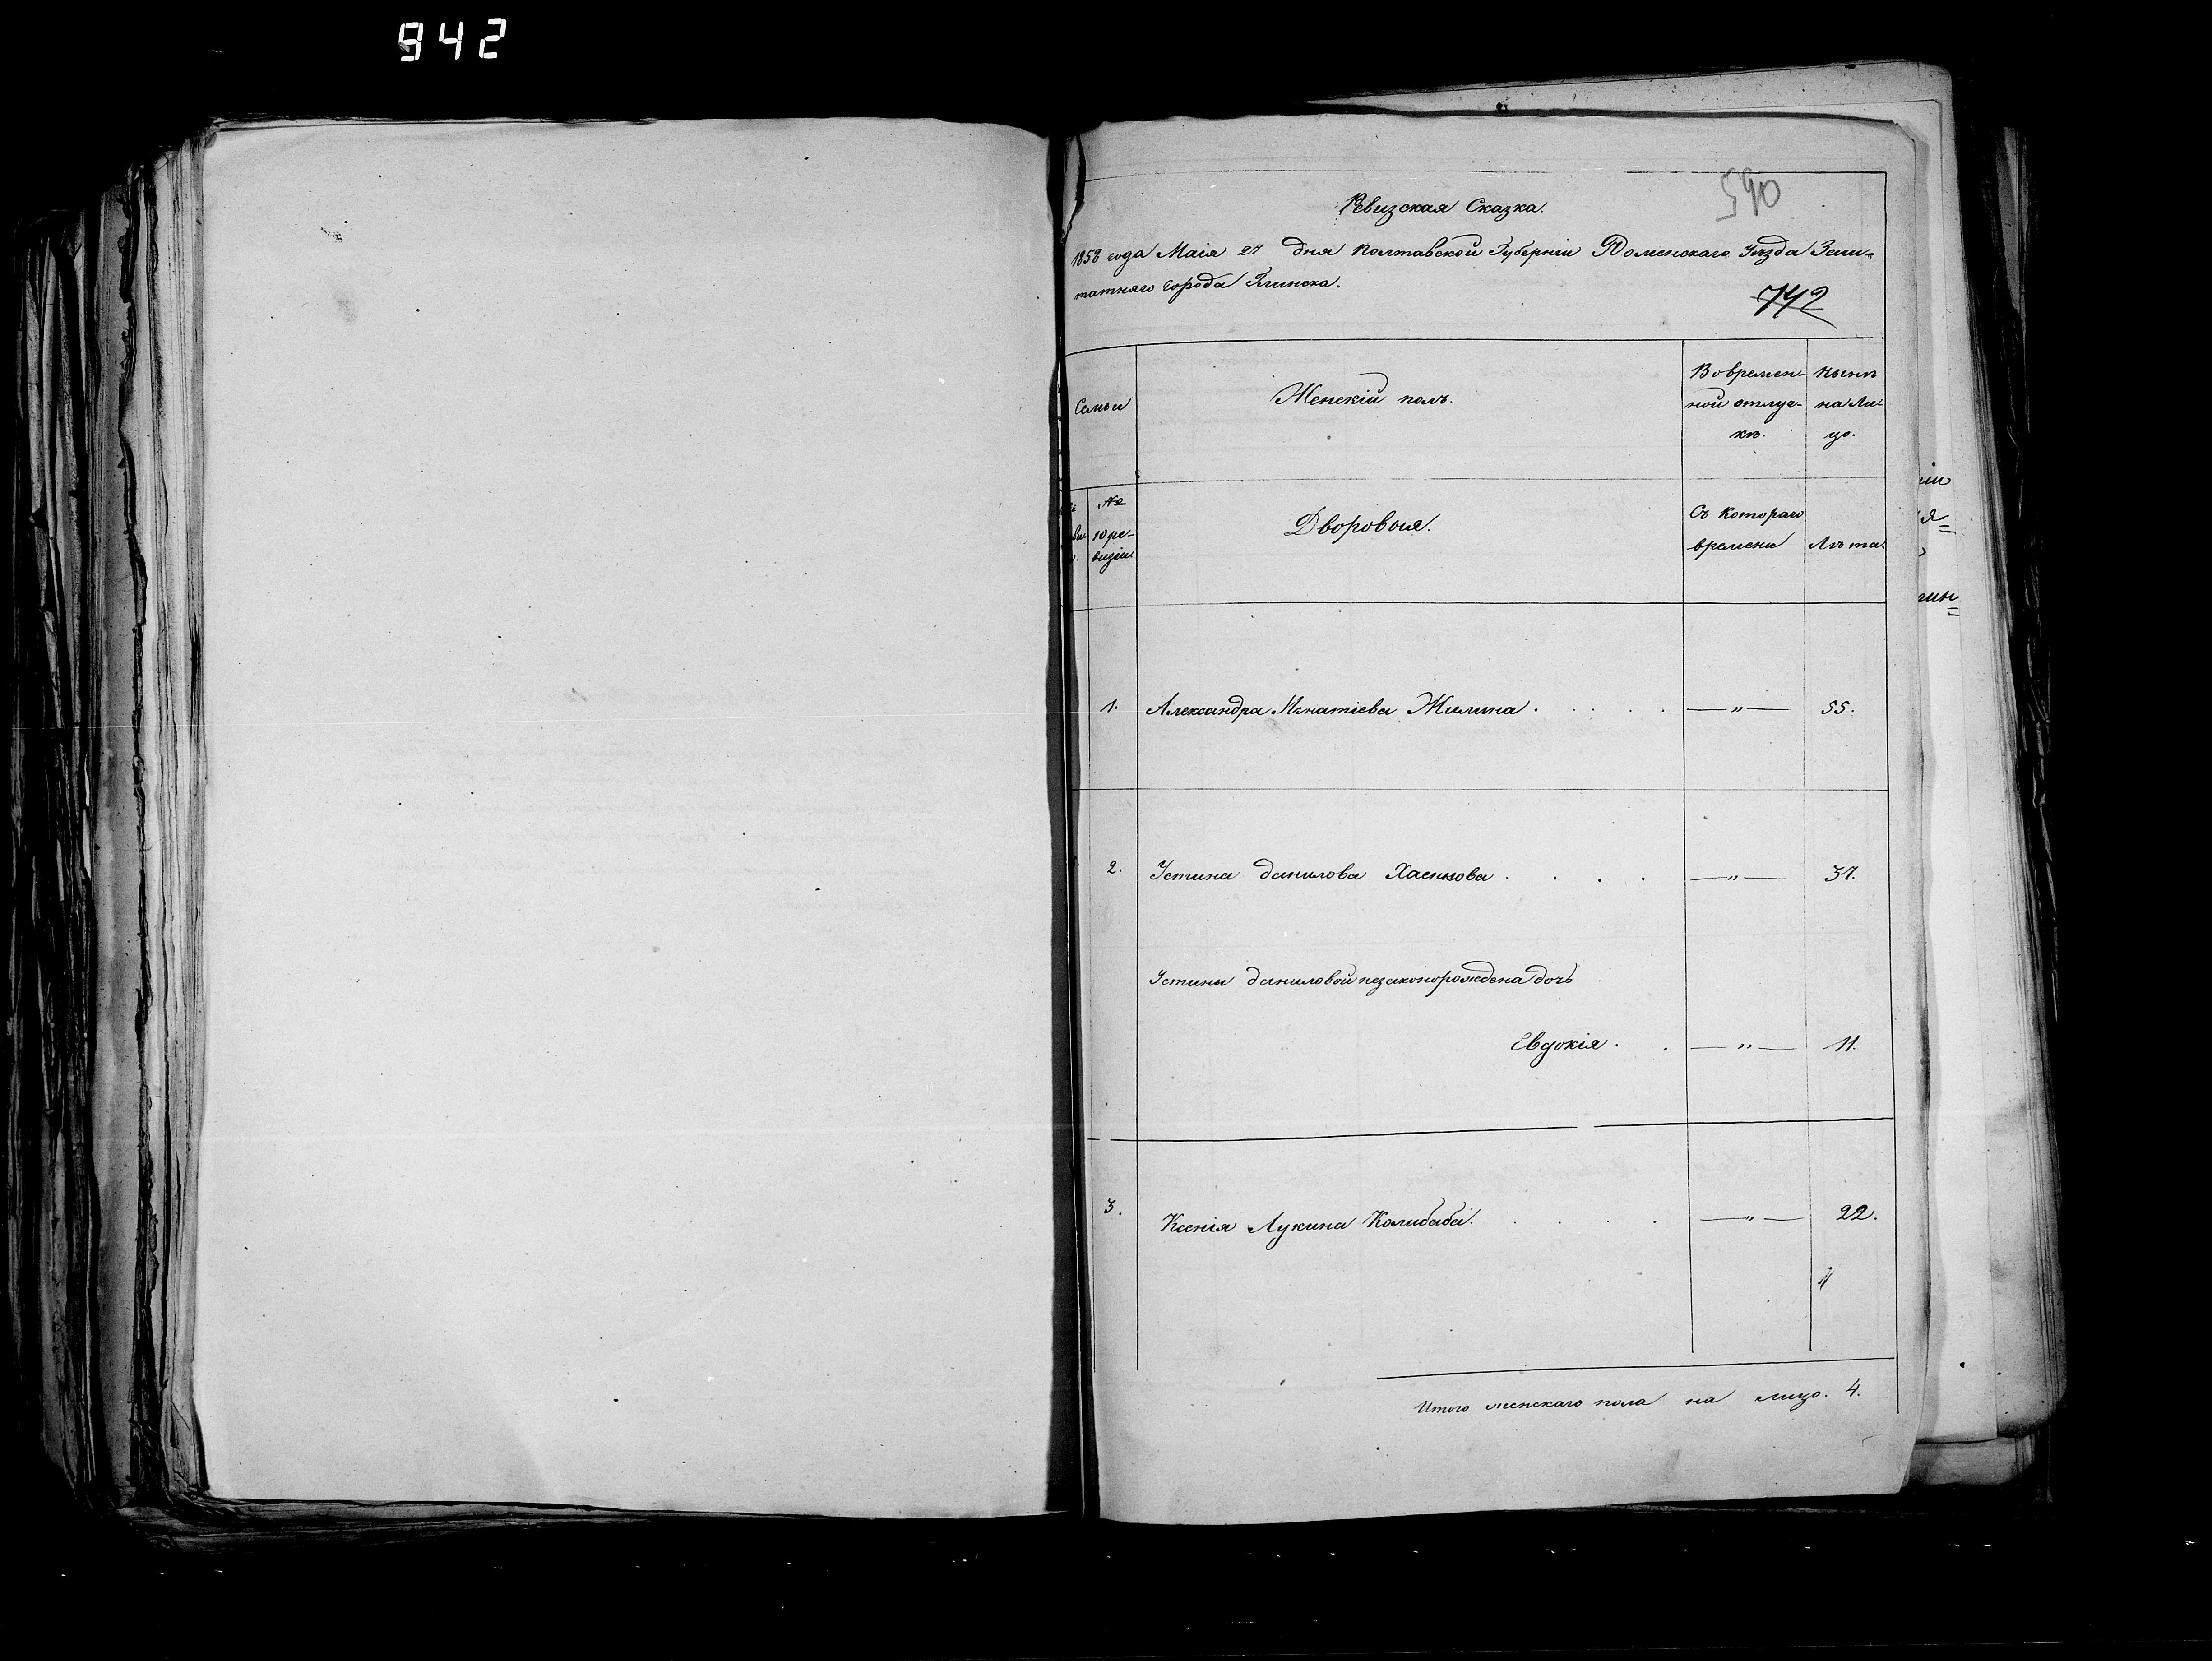 942
590
Ревизская Сказка.
1858 года Маія 27 дня Полтавской Губерніи Роменскаго Уѣзда Заш-
татнаго города Глинска.
742
Семьи
Женскій полъ.
Во времен-
ной отлуч-
кѣ.
Нынѣ
на Ли-
цо.
№
10 ре-
визіи
Дворовыя.
Съ котораго
времени
Лѣта.
1. Александра Игнатіева Жилина. — " — 55.
2. Устина Данилова Хаенкова. — " — 37.
Устины Даниловой незаконорождена дочь
Евдокія. — " — 11.
3. Ксенія Лукина Калибаба. — " — 22.
4
Итого женскаго пола на лицо. 4.